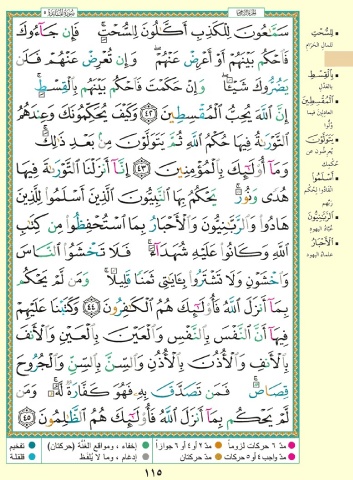 سُورَةُ المَائِدَةِ ٥
سَمَّٰعُونَ لِلْكَذِبِ أَكَّٰلُونَ لِلسُّحْتِ ۚ فَإِن جَآءُوكَ
فَٱحْكُم بَيْنَهُمْ أَوْ أَعْرِضْ عَنْهُمْ ۖ وَإِن تُعْرِضْ عَنْهُمْ فَلَن
يَضُرُّوكَ شَيْـًٔا ۖ وَإِنْ حَكَمْتَ فَٱحْكُم بَيْنَهُم بِٱلْقِسْطِ ۚ
إِنَّ ٱللَّهَ يُحِبُّ ٱلْمُقْسِطِينَ ٤٢ وَكَيْفَ يُحَكِّمُونَكَ وَعِندَهُمُ
ٱلتَّوْرَىٰةُ فِيهَا حُكْمُ ٱللَّهِ ثُمَّ يَتَوَلَّوْنَ مِنۢ بَعْدِ ذَٰلِكَ ۚ
وَمَآ أُو۟لَٰٓئِكَ بِٱلْمُؤْمِنِينَ ٤٣ إِنَّآ أَنزَلْنَا ٱلتَّوْرَىٰةَ فِيهَا
هُدًى وَنُورٌ ۚ يَحْكُمُ بِهَا ٱلنَّبِيُّونَ ٱلَّذِينَ أَسْلَمُوا۟ لِلَّذِينَ
هَادُوا۟ وَٱلرَّبَّٰنِيُّونَ وَٱلْأَحْبَارُ بِمَا ٱسْتُحْفِظُوا۟ مِن كِتَٰبِ
ٱللَّهِ وَكَانُوا۟ عَلَيْهِ شُهَدَآءَ ۚ فَلَا تَخْشَوُا۟ ٱلنَّاسَ
وَٱخْشَوْنِ وَلَا تَشْتَرُوا۟ بِـَٔايَٰتِى ثَمَنًا قَلِيلًا ۚ وَمَن لَّمْ يَحْكُم
بِمَآ أَنزَلَ ٱللَّهُ فَأُو۟لَٰٓئِكَ هُمُ ٱلْكَٰفِرُونَ ٤٤ وَكَتَبْنَا عَلَيْهِمْ
فِيهَآ أَنَّ ٱلنَّفْسَ بِٱلنَّفْسِ وَٱلْعَيْنَ بِٱلْعَيْنِ وَٱلْأَنفَ
بِٱلْأَنفِ وَٱلْأُذُنَ بِٱلْأُذُنِ وَٱلسِّنَّ بِٱلسِّنِّ وَٱلْجُرُوحَ
قِصَاصٌ ۚ فَمَن تَصَدَّقَ بِهِۦ فَهُوَ كَفَّارَةٌ لَّهُۥ ۚ وَمَن
لَّمْ يَحْكُم بِمَآ أَنزَلَ ٱللَّهُ فَأُو۟لَٰٓئِكَ هُمُ ٱلظَّٰلِمُونَ ٤٥
لِلسُّحْتِ
للمال الحرام
بِالْقِسْطِ
بالعدل
الْمُقْسِطِينَ
العادلين فيما
وُلُّوا
يَتَوَلَّوْنَ
يُعرضون عن
حُكمك
أَسْلَمُوا
انقادوا لحكم
ربّهم
الرَّبَّانِيُّونَ
عُبّاد اليهود
الْأَحْبَارُ
علماء اليهود
مدّ ٦ حركات لزوماً مدّ ٢ أو ٤ أو ٦ جوازاً إخفاء، ومواقع الغُنَّة (حركتان) تفخيم
مدّ واجب ٤ أو ٥ حركات مدّ حركتان إدغام، وما لا يُلفَظ قلقلة
١١٥